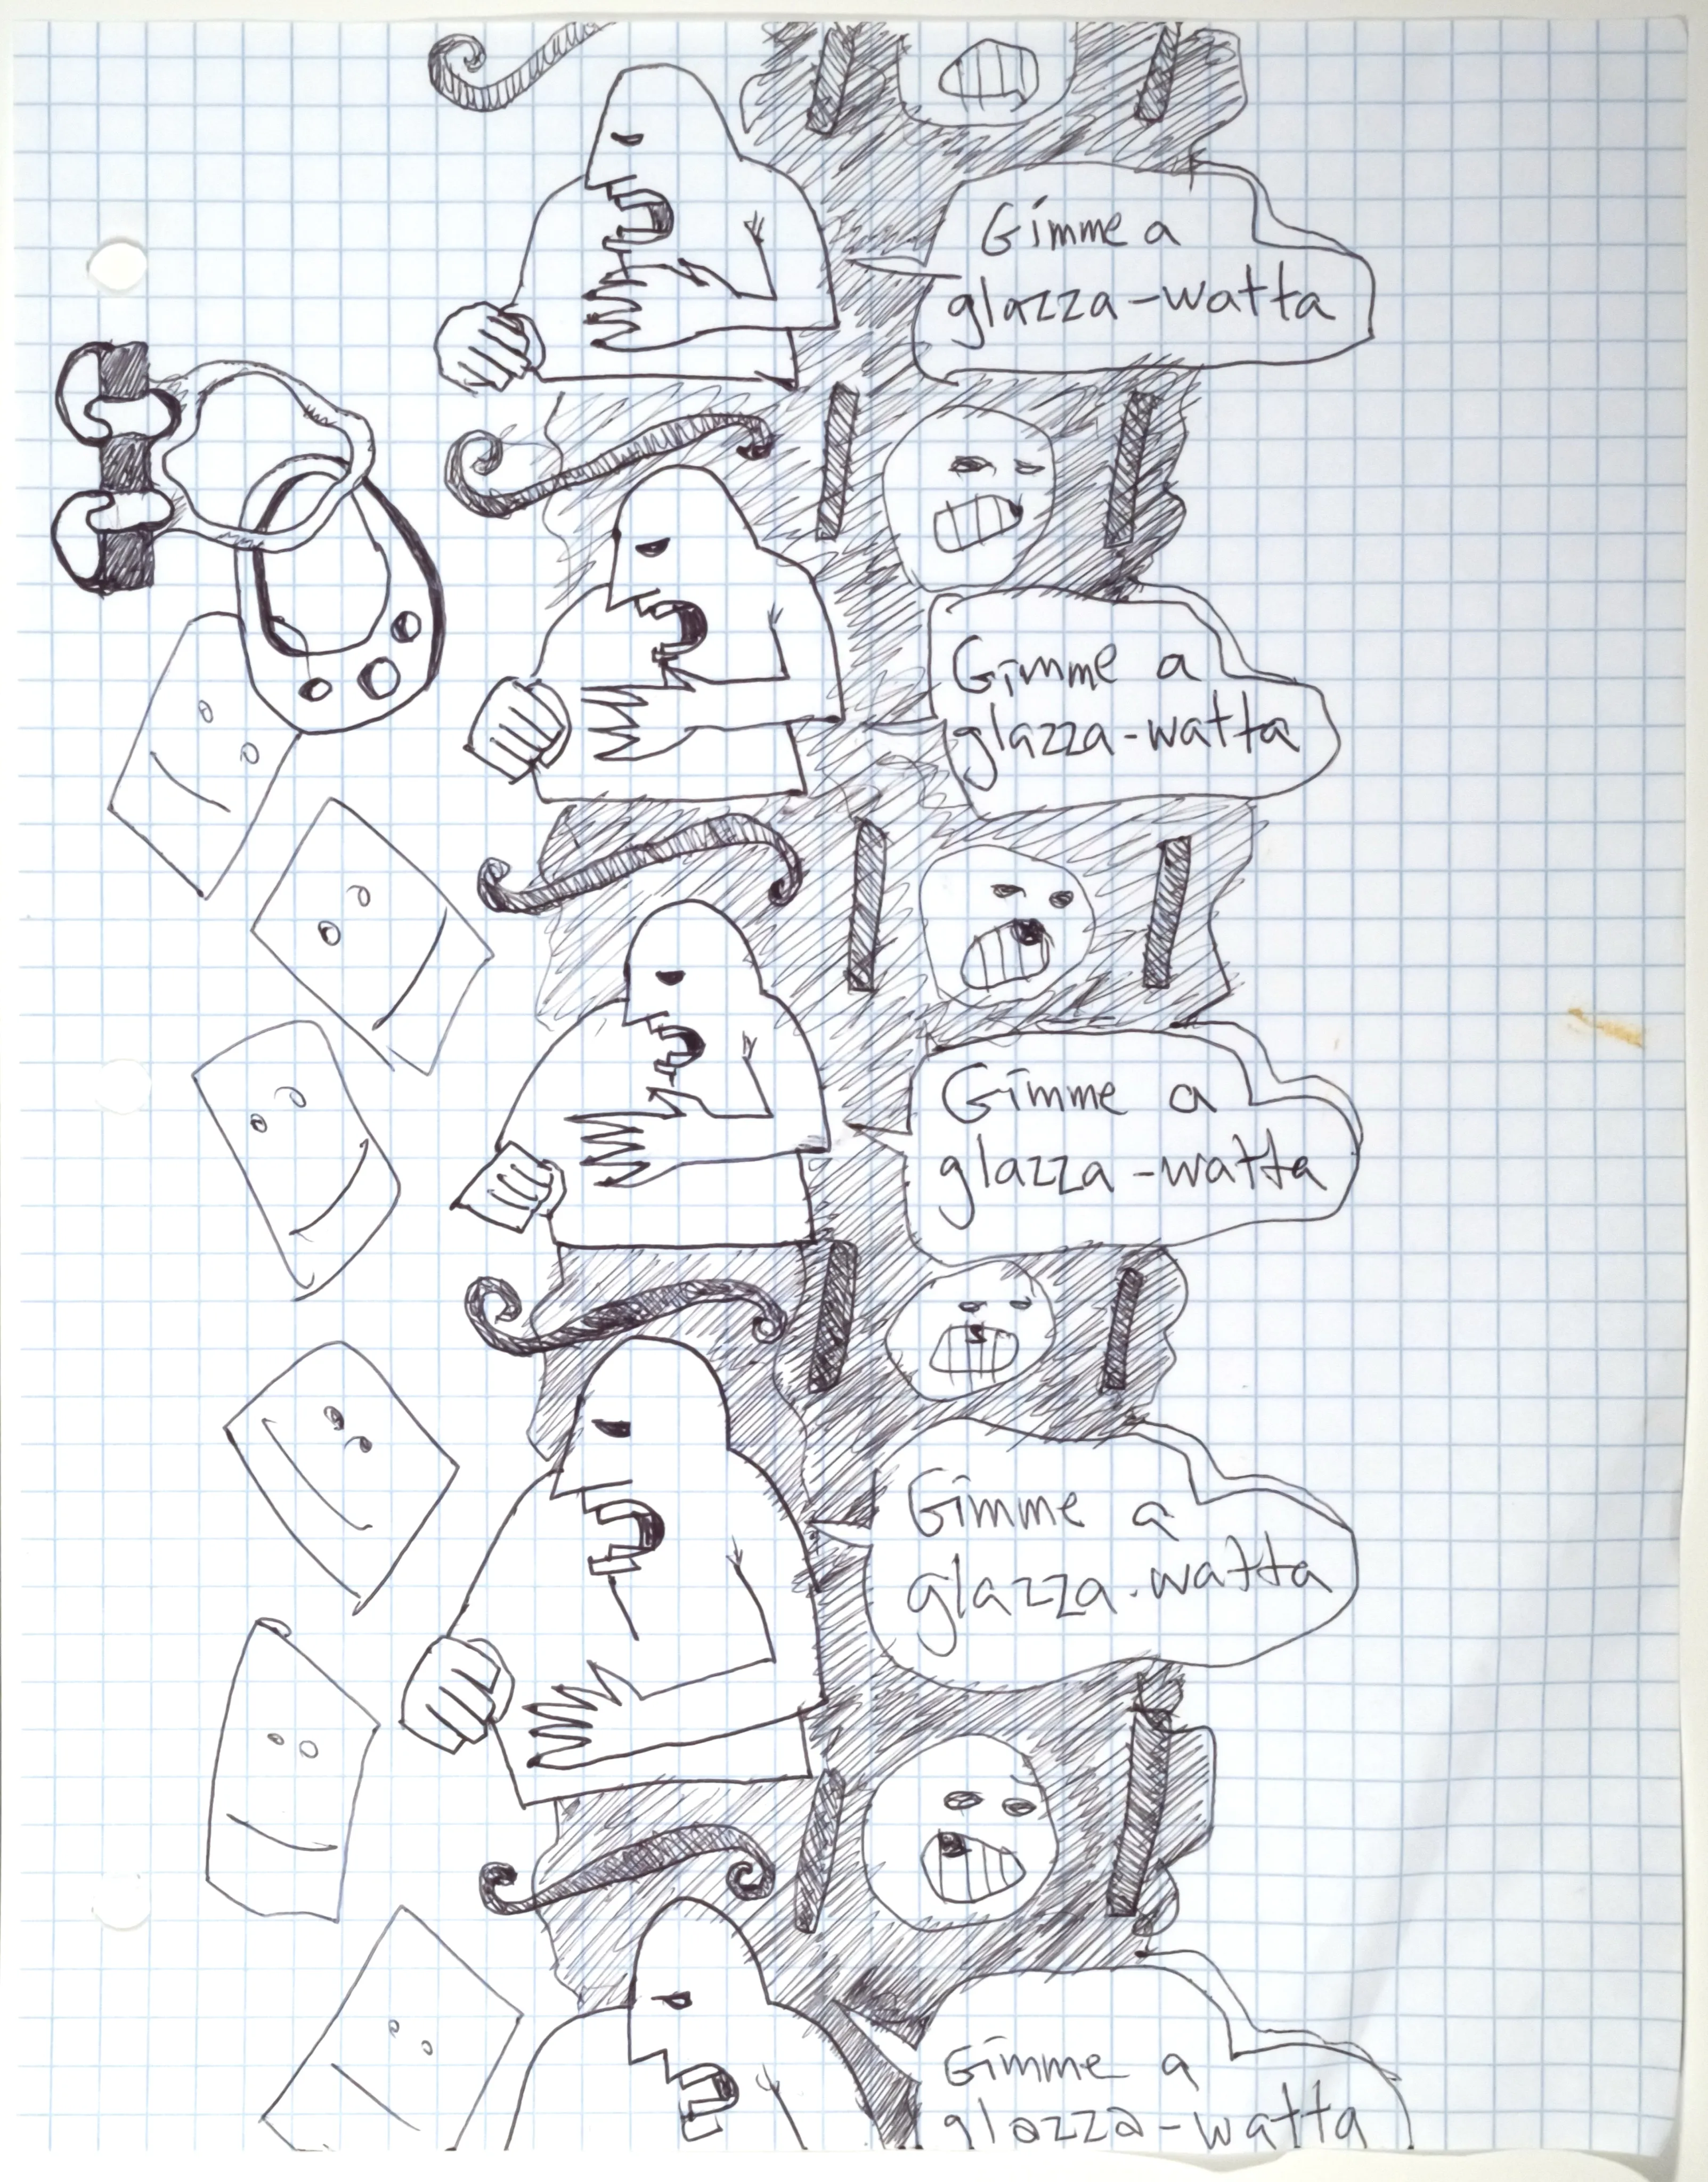 Gimme a
glazza-watta
Gimme a
glazza-watta
Gimme a
glazza-watta
Gimme a
glazza-watta
Gimme a
glazza-watta